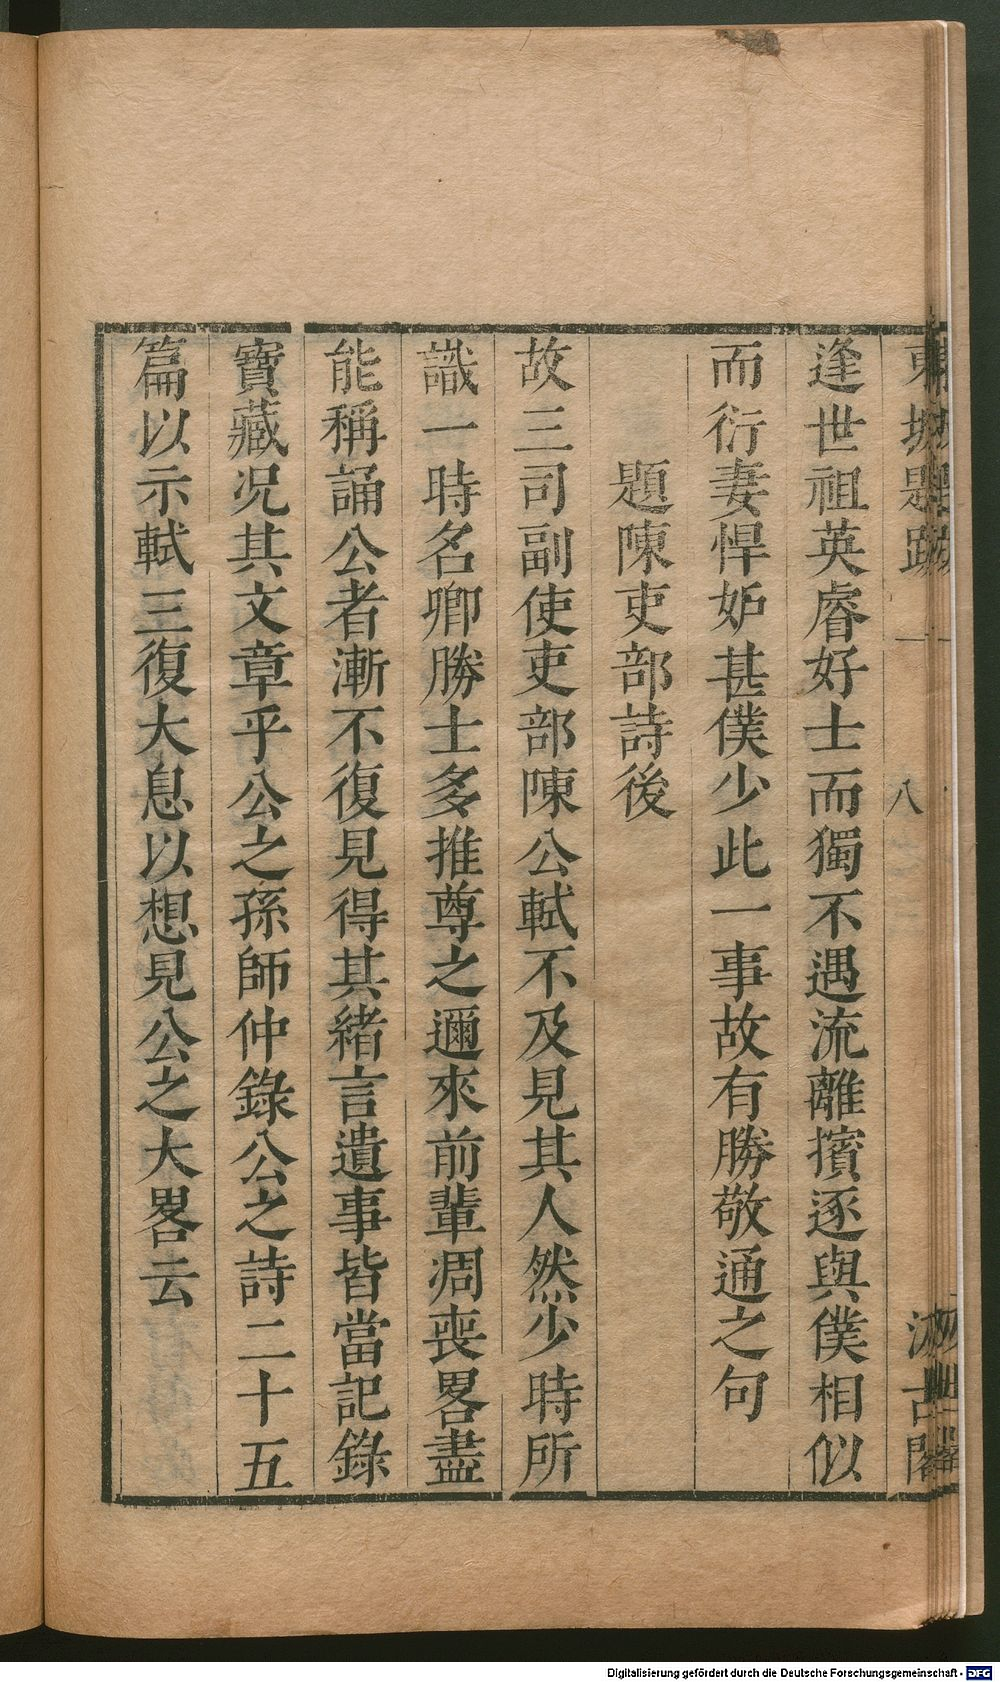 東坡題跋 一 八 汲古閣
逢世祖英睿好士而獨不遇流離擯逐與僕相似
而衍妻悍妒甚僕少此一事故有勝敬通之句
題陳吏部詩後
故三司副使吏部陳公軾不及見其人然少時所
識一時名卿勝士多推尊之邇來前輩凋喪畧盡
能稱誦公者漸不復見得其緒言遺事皆當記錄
寶藏况其文章乎公之孫師仲錄公之詩二十五
篇以示軾三復大息以想見公之大畧云
Digitalisierung gefördert durch die Deutsche Forschungsgemeinschaft - DFG